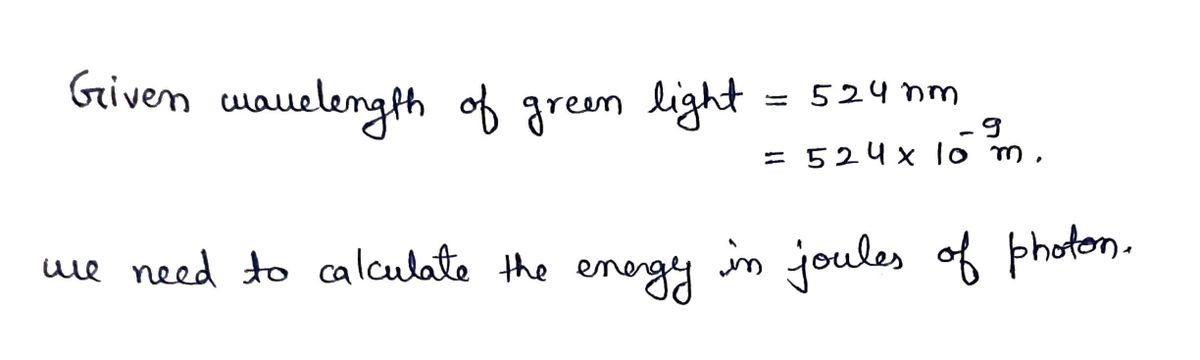 Given wavelength of green light = 524 nm
= 524 x 10⁻⁹ m.
we need to calculate the energy in joules of photon.